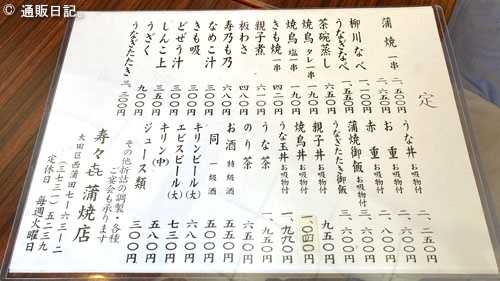 © 通販日記。
定
蒲焼 一串 二、五〇〇円
二、六五〇円
柳川なべ 一、五〇〇円
うなぎなべ
茶碗蒸し 六五〇円
焼鳥 タレ一串 一九〇円
焼鳥 塩一串 一九〇円
きも焼 一串 四二〇円
親子煮 六一〇円
板わさ 四八〇円
寿乃も乃 六八〇円
なめこ汁 三五〇円
きも吸 三〇〇円
どぜう汁 三五〇円
しんこ上 五三〇円
うざく 九〇〇円
うなぎたたき 二、三〇〇円
うな丼 お吸物付 二、二五〇円
お重 お吸物付 二、八〇〇円
赤重 お吸物付 三、六〇〇円
蒲焼御飯 お吸物付
うなぎたたき御飯
親子丼 お吸物付 九五〇円
焼鳥丼 お吸物付 一、〇四〇円
うな玉丼 お吸物付
うな茶 一、九五〇円
のり茶 六五〇円
お酒 特級酒 五五〇円
同 一級酒 五〇〇円
キリンビール(大) 六八〇円
エビスビール(大) 七三〇円
キリン(中) 五八〇円
ジュース類 三〇〇円
その他折詰の調製・各種
ご宴会も承ります
寿々㐂 蒲焼店
大田区西蒲田七-六三-二
(三七三一)五二三九
定休日 毎週火曜日